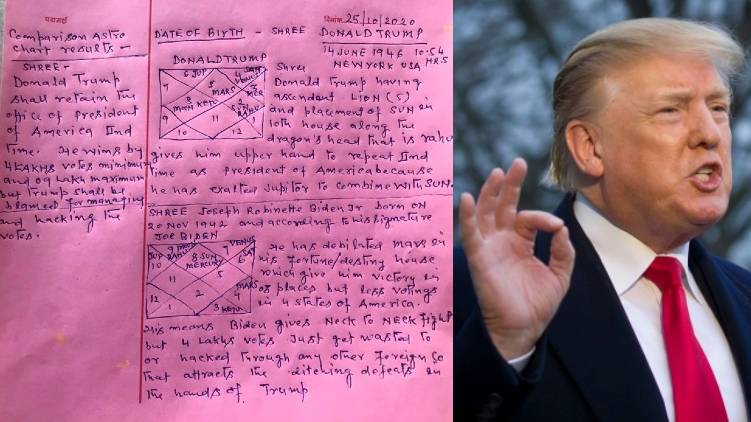 परामर्श
दिनांक 25/10/2020
Comparison Astro
Chart results -
SHREE -
Donald Trump
shall retain the
office of president
of America IInd
Time. He wins by
4 LAKHS votes minimum
and 09 Lakh maximum
but Trump shall be
blamed for managing
and hacking the
votes.
DATE OF BIRTH - SHREE DONALD TRUMP
14 JUNE 1946 10:54
NEW YORK USA HRS
DONALD TRUMP
6 JUP
4 SAT
VENUS
7
5
MARS
3
MER
8
MOON KETU
2
SUN
RAHU
9
11
10
12
1
Shree
Donald Trump having
ascendent LION (5)
and placement of SUN in
10th house along the
dragon's head that is rahu
gives him upper hand to repeat IInd
time as president of America because
he has exalted Jupitor to combine WITH SUN.
SHREE Joseph Robinette Biden Jr born on
20 NOV 1942 and according to his signature
JOE BIDEN
9
7 VENUS
JUP
10
8 SUN
MERCURY
6
11
5
12
2
MARS
4
1
3
He has debilated mars in
his fortune/destiny house
which give him victory in
08 places but less votings
in 4 states of America.
This means Biden gives Neck to NECK fight
but 4 Lakhs votes Just get wasted to
or hacked through any other foreign so
that attracts the ditching defeats in
the hands of Trump